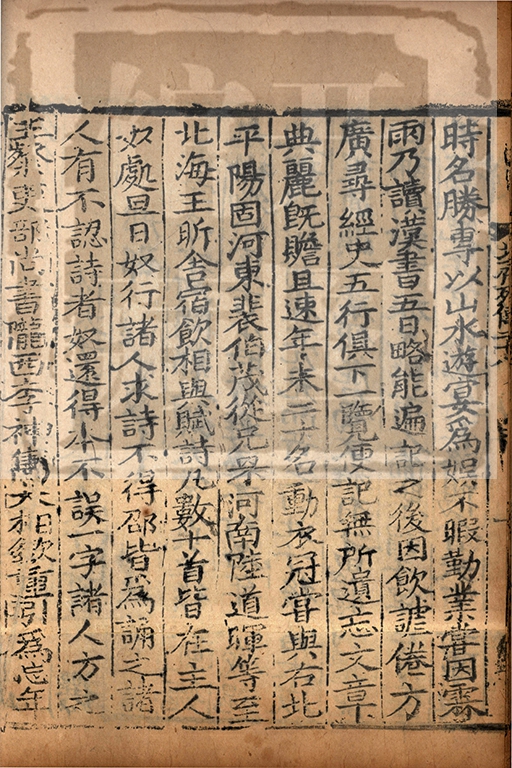 時名勝專以山水遊宴為娛不暇勤業嘗因霖
雨乃讀漢書五日略能遍記之後因飲謔倦方
廣尋經史五行俱下一覽便記無所遺忘文章
典麗既贍且速年未二十名動衣冠嘗與右北
平陽固河東裴伯茂從兄罘河南陸道暉等至
北海王昕舍宿飲相與賦詩凡數十首皆在主人
奴處旦日奴行諸人求詩不得邵皆為誦之諸
人有不認詩者奴還得本不誤一字諸人方之
王粲吏部尚書隴西李神儁大相欽重引為忘年